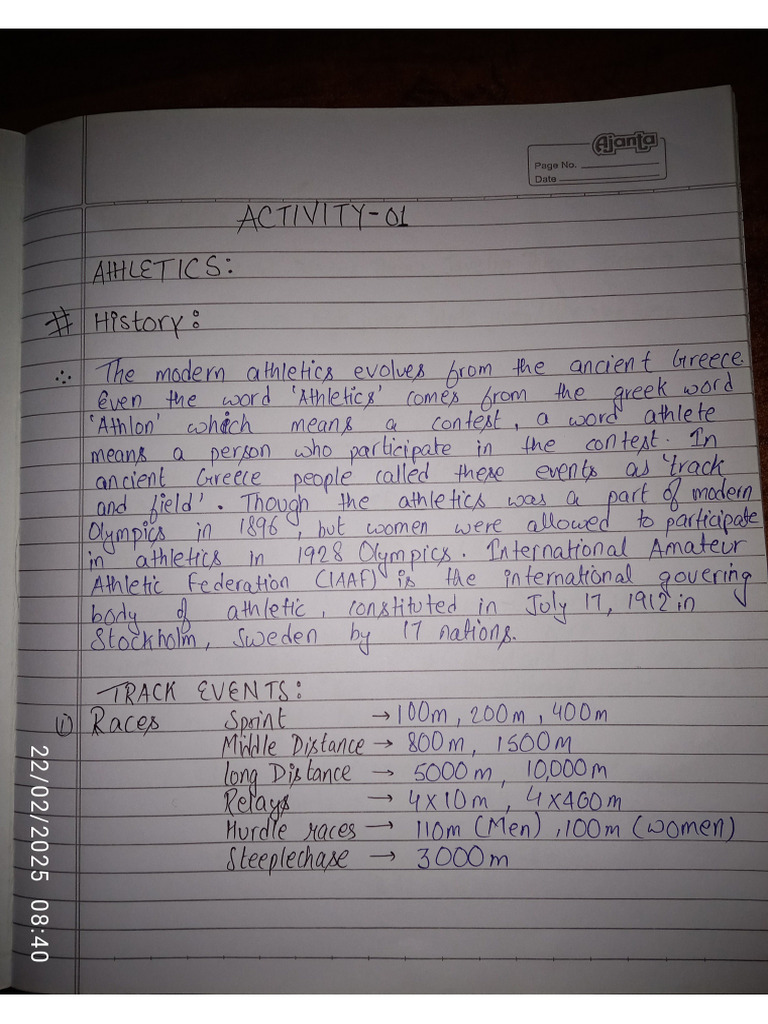 Ajanta
Page No.
Date
ACTIVITY-01
ATHLETICS:
# History:
∴ The modern athletics evolves from the ancient Greece.
Even the word 'Athletics' comes from the greek word
'Athlon' which means a contest, a word athlete
means a person who participate in the contest. In
ancient Greece people called these events as 'track
and field'. Though the athletics was a part of modern
Olympics in 1896, but women were allowed to participate
in athletics in 1928 Olympics. International Amateur
Athletic Federation (IAAF) is the international govering
body of athletic, constituted in July 17, 1912 in
Stockholm, Sweden by 17 nations.
TRACK EVENTS:
i) Races Sprint → 100m, 200m, 400m
Middle Distance → 800m, 1500m
long Distance → 5000m, 10,000m
Relays → 4x10m, 4x400m
Hurdle races → 110m (Men), 100m (women)
Steeplechase → 3000m
22/02/2025 08:40